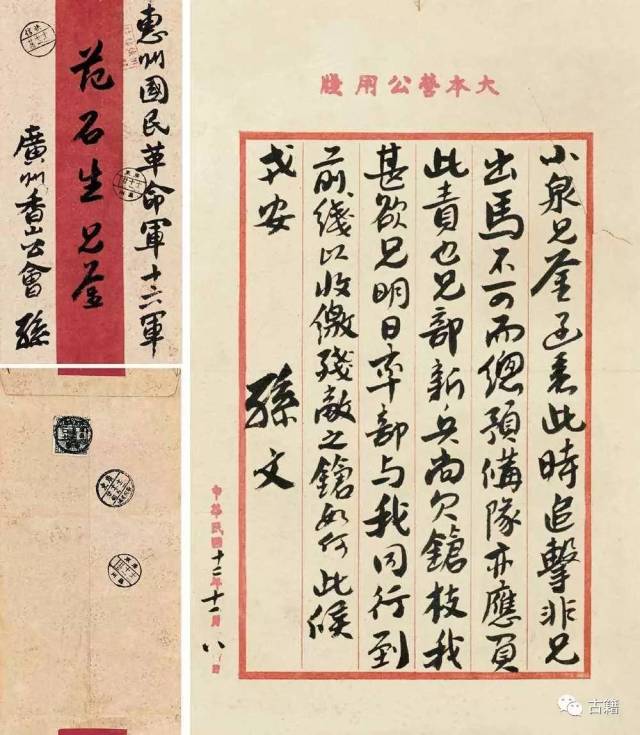 惠州國民革命軍十六軍
范石生兄鉴
廣州香山公會 孫
大本營公用牋
小泉兄鉴函悉此時追擊非兄
出馬不可而總預備隊亦應負
此責也兄部新兵尚欠鎗枝我
甚欲兄明日率部与我同行到
前线以收缴残敵之鎗如何此候
戎安
孫文
中華民國十二年十一月八日
古籍